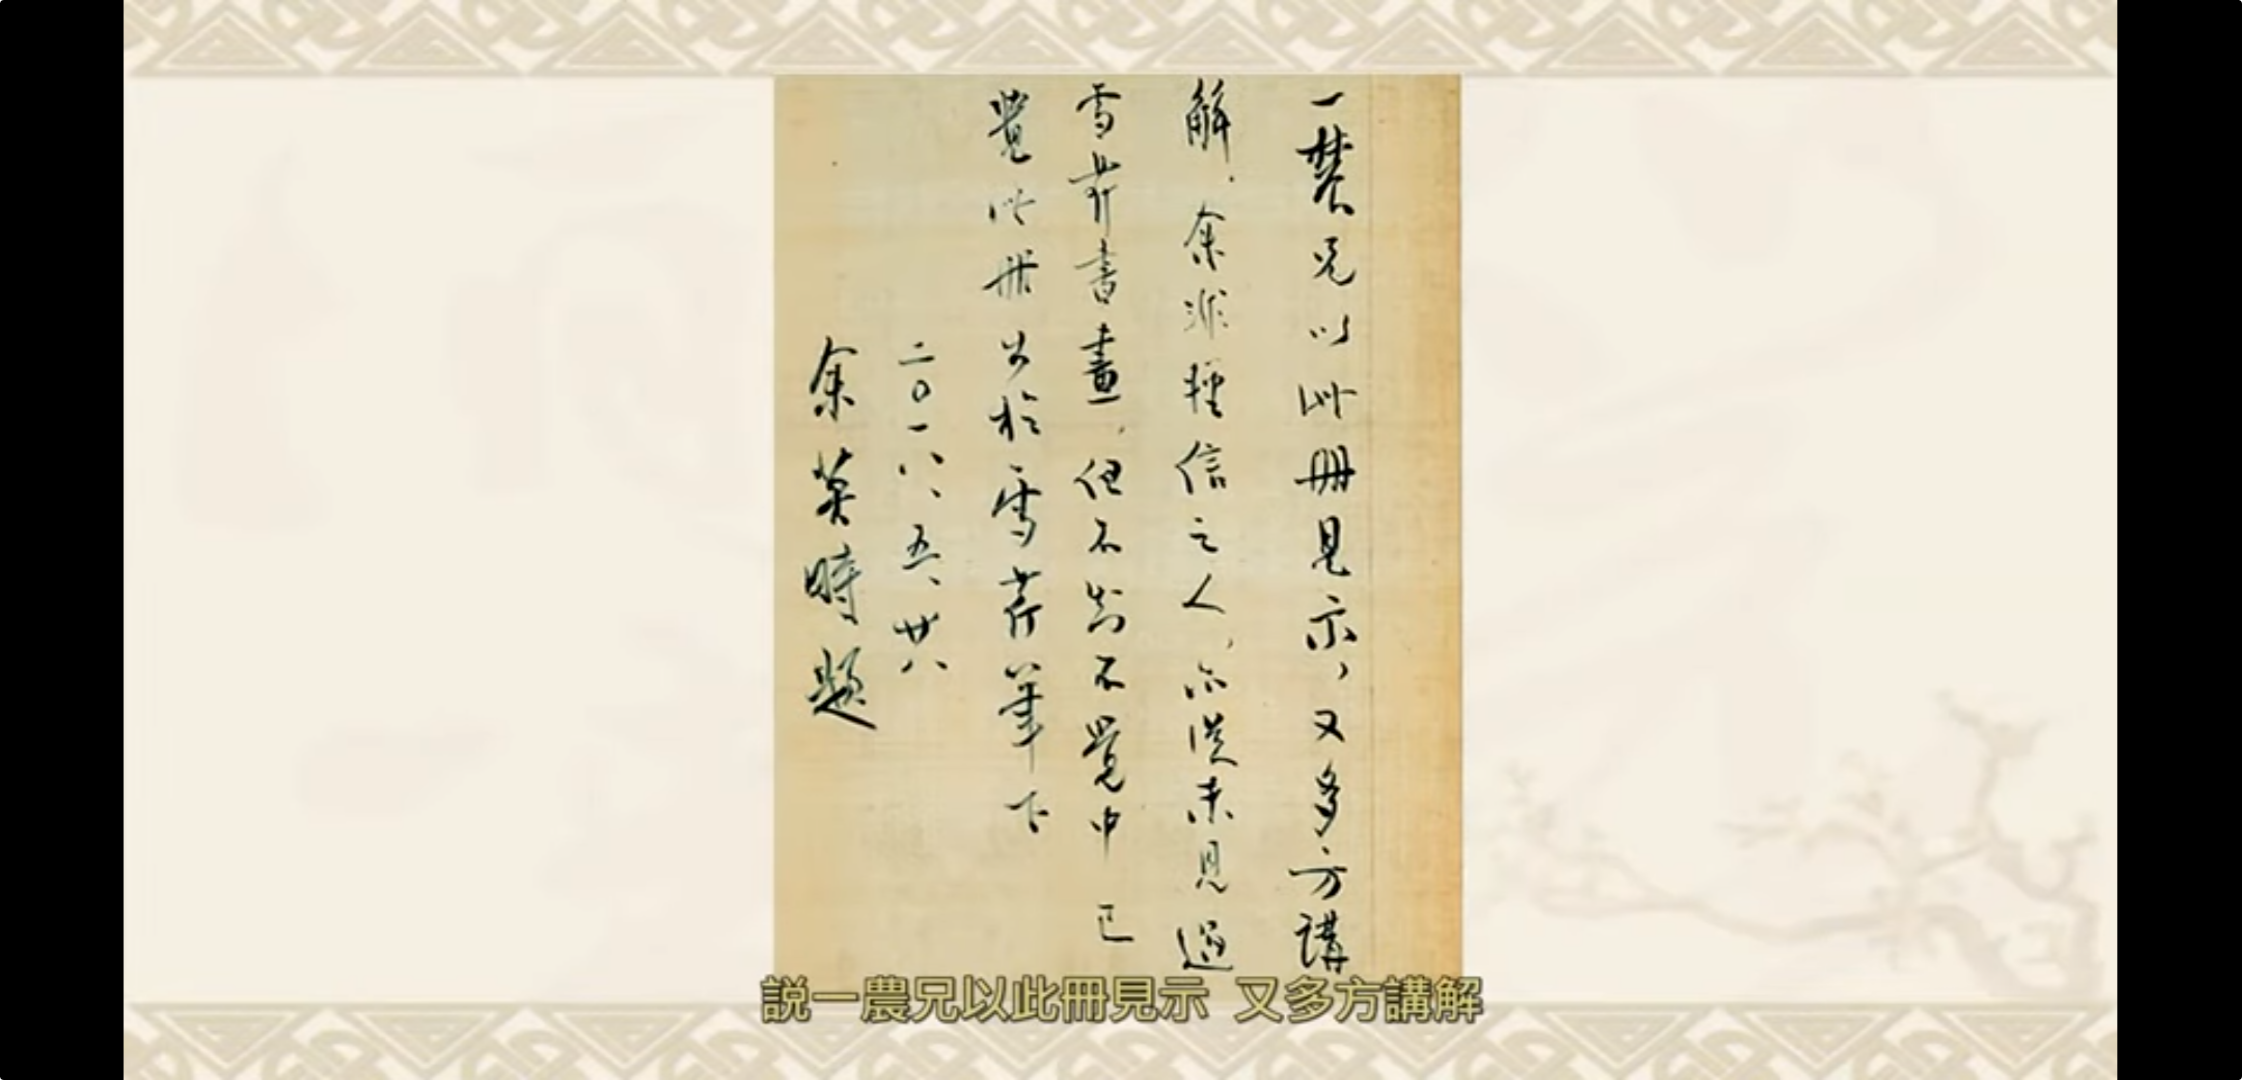 一農兄以此冊見示，又多方講
解．余非輕信之人，亦從未見過
雪芹書畫，但不知不覺中已
覺此冊出於雪芹筆下
二〇一八、五、廿八
余英時題
説一農兄以此冊見示 又多方講解